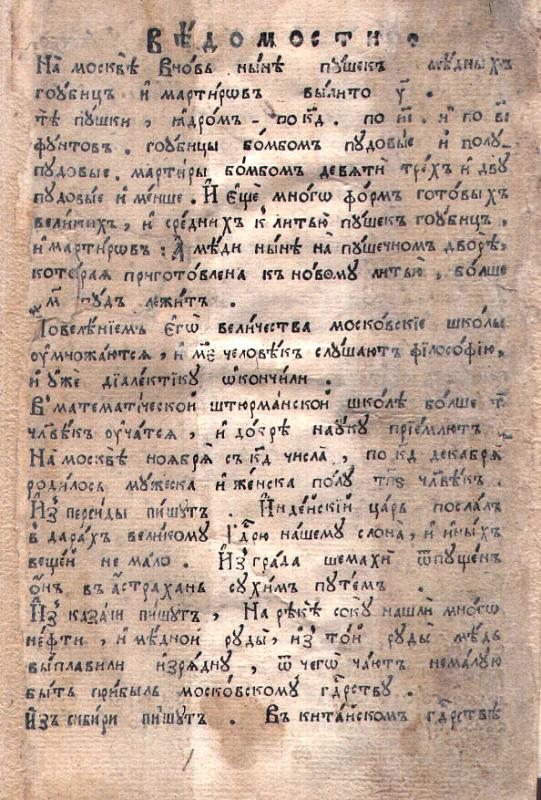 ВѢДОМОСТИ.
На москвѣ вновь нынѣ пушекъ мѣдныхъ
гоубицъ и мартировъ вылито у҃.
тѣ пушки, ядромъ - по к҃д. по и҃і. и по в҃і
фунтовъ. гоубицы бомбомъ пудовые и полу-
пудовые. мартиры бомбомъ девяти трехъ и дву
пудовые и менше. И еще многѡ формъ готовыхъ
великихъ, и среднихъ к литью пушекъ гоубицъ,
и мартировъ: А мѣди нынѣ на пушечномъ дворѣ,
которая приготовлена къ новому литью, болше
м҃ пудъ лежитъ.
Повелѣніемъ егѡ величества московскіе школы
оумножаются, и м҃е человѣкъ слушаютъ философію,
и уже діалектіку ѡкончили.
В математіческой штюрманской школѣ болше т҃
чл҃вѣкъ оучатся, и добрѣ науку пріемлютъ.
На москвѣ ноября съ к҃д числа, по к҃д декабря
родилось мужеска и женска полу т҃п҃ѕ чл҃вѣкъ.
Из персиды пишутъ. Индѣйскій царь послалъ
в дарахъ великому гд҃рю нашему слона, и иныхъ
вещей не мало. Из града шемахи ѿпущенъ
онъ въ астрахань сухимъ путемъ.
Из казани пишутъ, На рѣкѣ соку нашли многѡ
нефти, и мѣдной руды, из той руды мѣдь
выплавили изрядну, ѿ чегѡ чаютъ немалую
быть прибыль московскому гд҃рству.
Изъ сибири пишутъ. Въ китайскомъ гд҃рствѣ